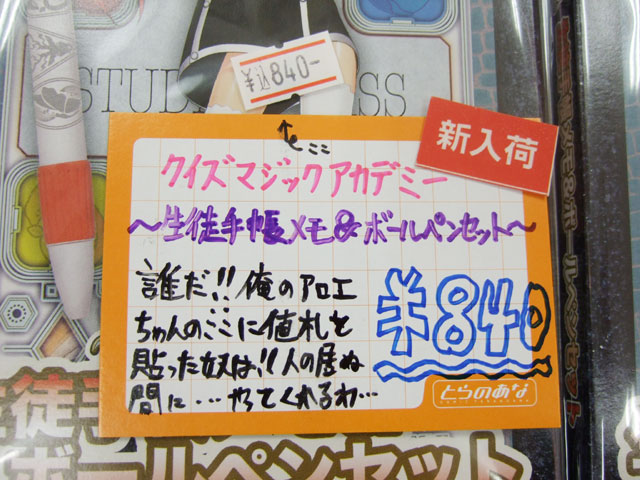 STUD SS
¥込840-
新入荷
↑ここ
クイズマジックアカデミー
～生徒手帳メモ&ボールペンセット～
誰だ!!俺のアロエ
ちゃんのここに値札を
貼った奴は!!人の居ぬ
間に・・・やってくれるわ・・・
¥840
とらのあな
徒手
ボールペンセット